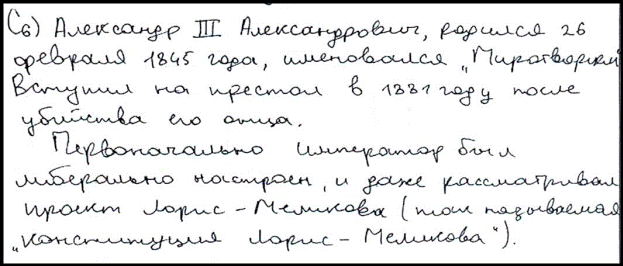 С6) Александр III Александрович, родился 26
февраля 1845 года, именовался „Миротворцем"
Вступил на престол в 1881 году после
убийства его отца.
Первоначально император был
либерально настроен, и даже рассматривал
проект Лорис-Меликова (так называемая
„конституция Лорис-Меликова").